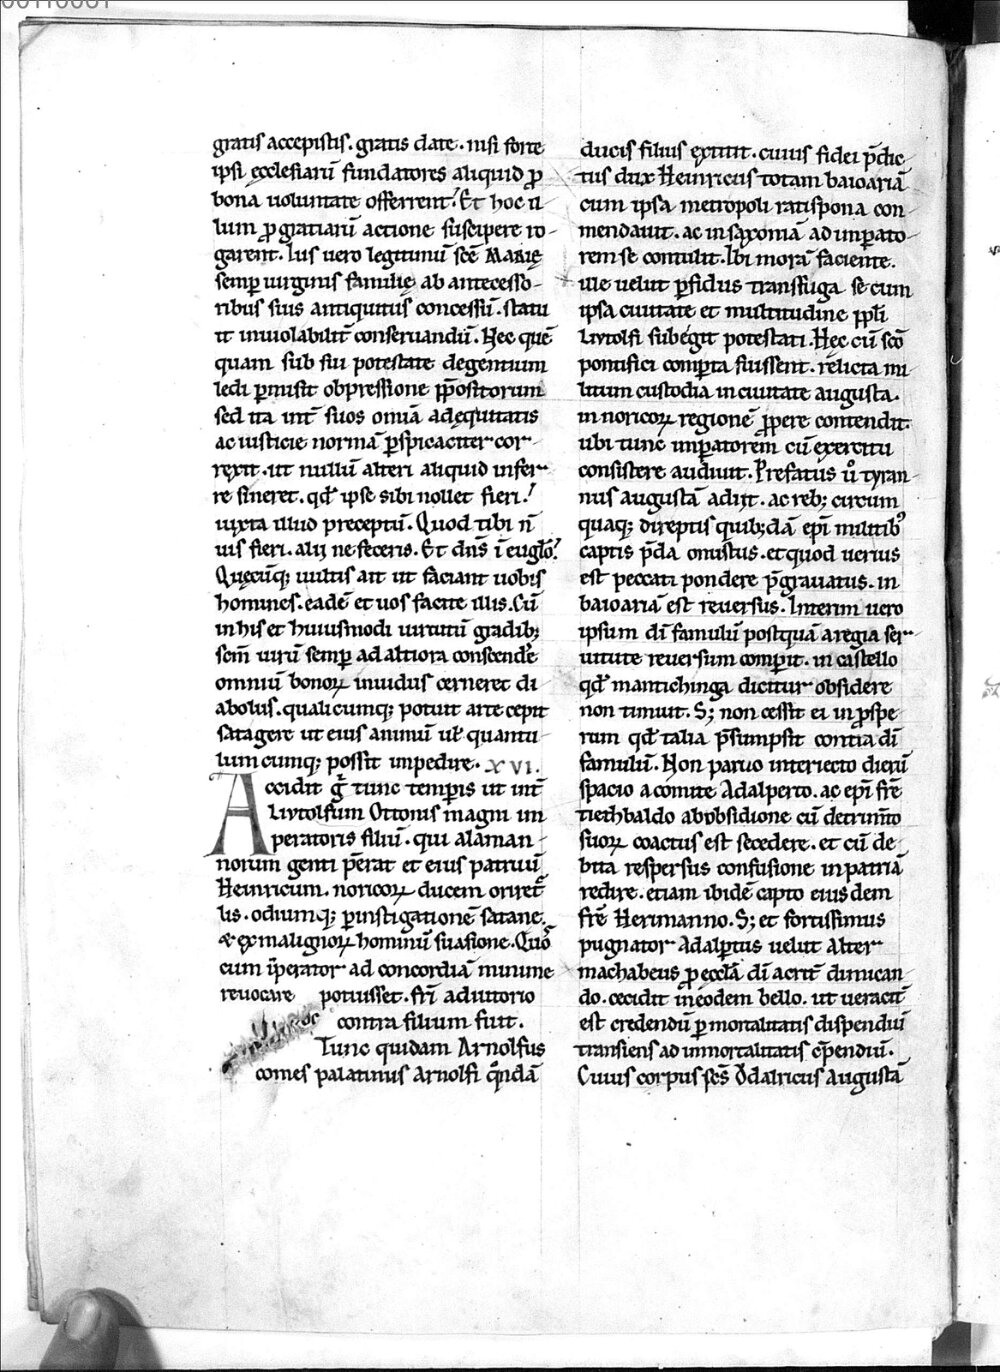 gratis accepistis. gratis date. nisi forte
ipsi ęcclesiarū fundatores aliquid p̄
bona uoluntate offerrent. Et hoc il
lum ꝑ gratiarū actione suscipere ro-
garent. Ius uero legitimū scē MARIĘ
semꝑ uirginis familię ab antecesso-
ribus suis antiquitus concessū. statu
it inuiolabilit̄ conseruandū. Nec quē
quam sub sui potestate degentium
ledi ꝑmisit obpressione p̄positorum
sed ita int̄ suos omīa adęquitatis
ac iusticie normā ꝑspicaciter cor-
rexit. ut nullū alteri aliquid infer-
re sineret. qd̄ ipse sibi nollet fieri.
iuxta illud preceptū. Quod tibi n̄
uis fieri. alii ne feceris. Et dn̄s ī euglo.
Quęcūq; uultis ait ut faciant uobis
homines. eadē et uos facite illis. Cū
in his et huiusmodi uirtutū gradib;
scm̄ uirū semꝑ ad altiora conscendē
omniū bonoꝝ inuidus cerneret di
abolus. qualicumq; potuit arte cepit
satagere ut eius animū ul̄ quantu
lumcumq; possit impedire. XVI.
Accidit g̃ tunc temꝑis ut int̄
Livtolfum Ottonis magni im
peratoris filiū. qui alaman-
norum genti p̄erat et eius patruū
Heinricum. noricoꝝ ducem oriret̄
lis. odiumq; ꝑ instigationē satanę.
& ex malignoꝝ hominū suasione. Quō
cum īperator ad concordiā minime
reuocare potuisset. fr̄i adiutorio
contra filium fuit.
Tunc quidam Arnolfus
comes palatinus Arnolfi qn̄dā
ducis filius extitit. cuius fidei p̄dic-
tus dux Heinricus totam baioariā
cum ipsa metropoli ratispona con-
mendauit. ac in saxoniā ad inꝑato-
rem se contulit. Ibi morā faciente.
ille uelut ꝑfidus transfuga se cum
ipsa ciuitate et multitudine ppl̄i
Livtolfi subegit potestati. Hęc cū scō
pontifici comꝑta fuissent. relicta mi
litum custodia in ciuitate augusta.
in noricoꝝ regionē ꝓpere contendit.
ubi tunc inꝑatorem cū exercitu
consistere audiuit. Prefatus ů tyran-
nus augustā adiit. ac reb; circum
quaq; direptis quib;dā ep̄i militib;
captis p̄da onustus. et quod uerius
est peccati pondere p̄grauatus. in
baioariā est reuersus. Interim uero
ipsum dī famulū postquā a regia ser-
uitute reuersum comꝑit. in castello
qd̄ mantichinga dicitur obsidere
non timuit. S; non cessit ei in ꝓspe-
rum qd̄ talia p̄sumpsit contra dī
famulū. Non paruo interiecto dierū
spacio a comite Adalperto. ac ep̄i fr̄e
tiethbaldo ab obsidione cū detrim̄to
suoꝝ coactus est secedere. et cū de
bita respersus confusione in patriā
redire. etiam ibidē capto eiusdem
fr̄e Herimanno. S; et fortissimus
pugnator Adalꝑtus uelut Alter
machabeus ꝓ ęccl̄a dī acrit̄ dimican-
do. cecidit in eodem bello. ut ueracit̄
est credendū ꝑ mortalitatis dispendiū
transiens ad inmortalitatis cp̄endiū.
Cuius corpus scs̄ Odalricus augustā